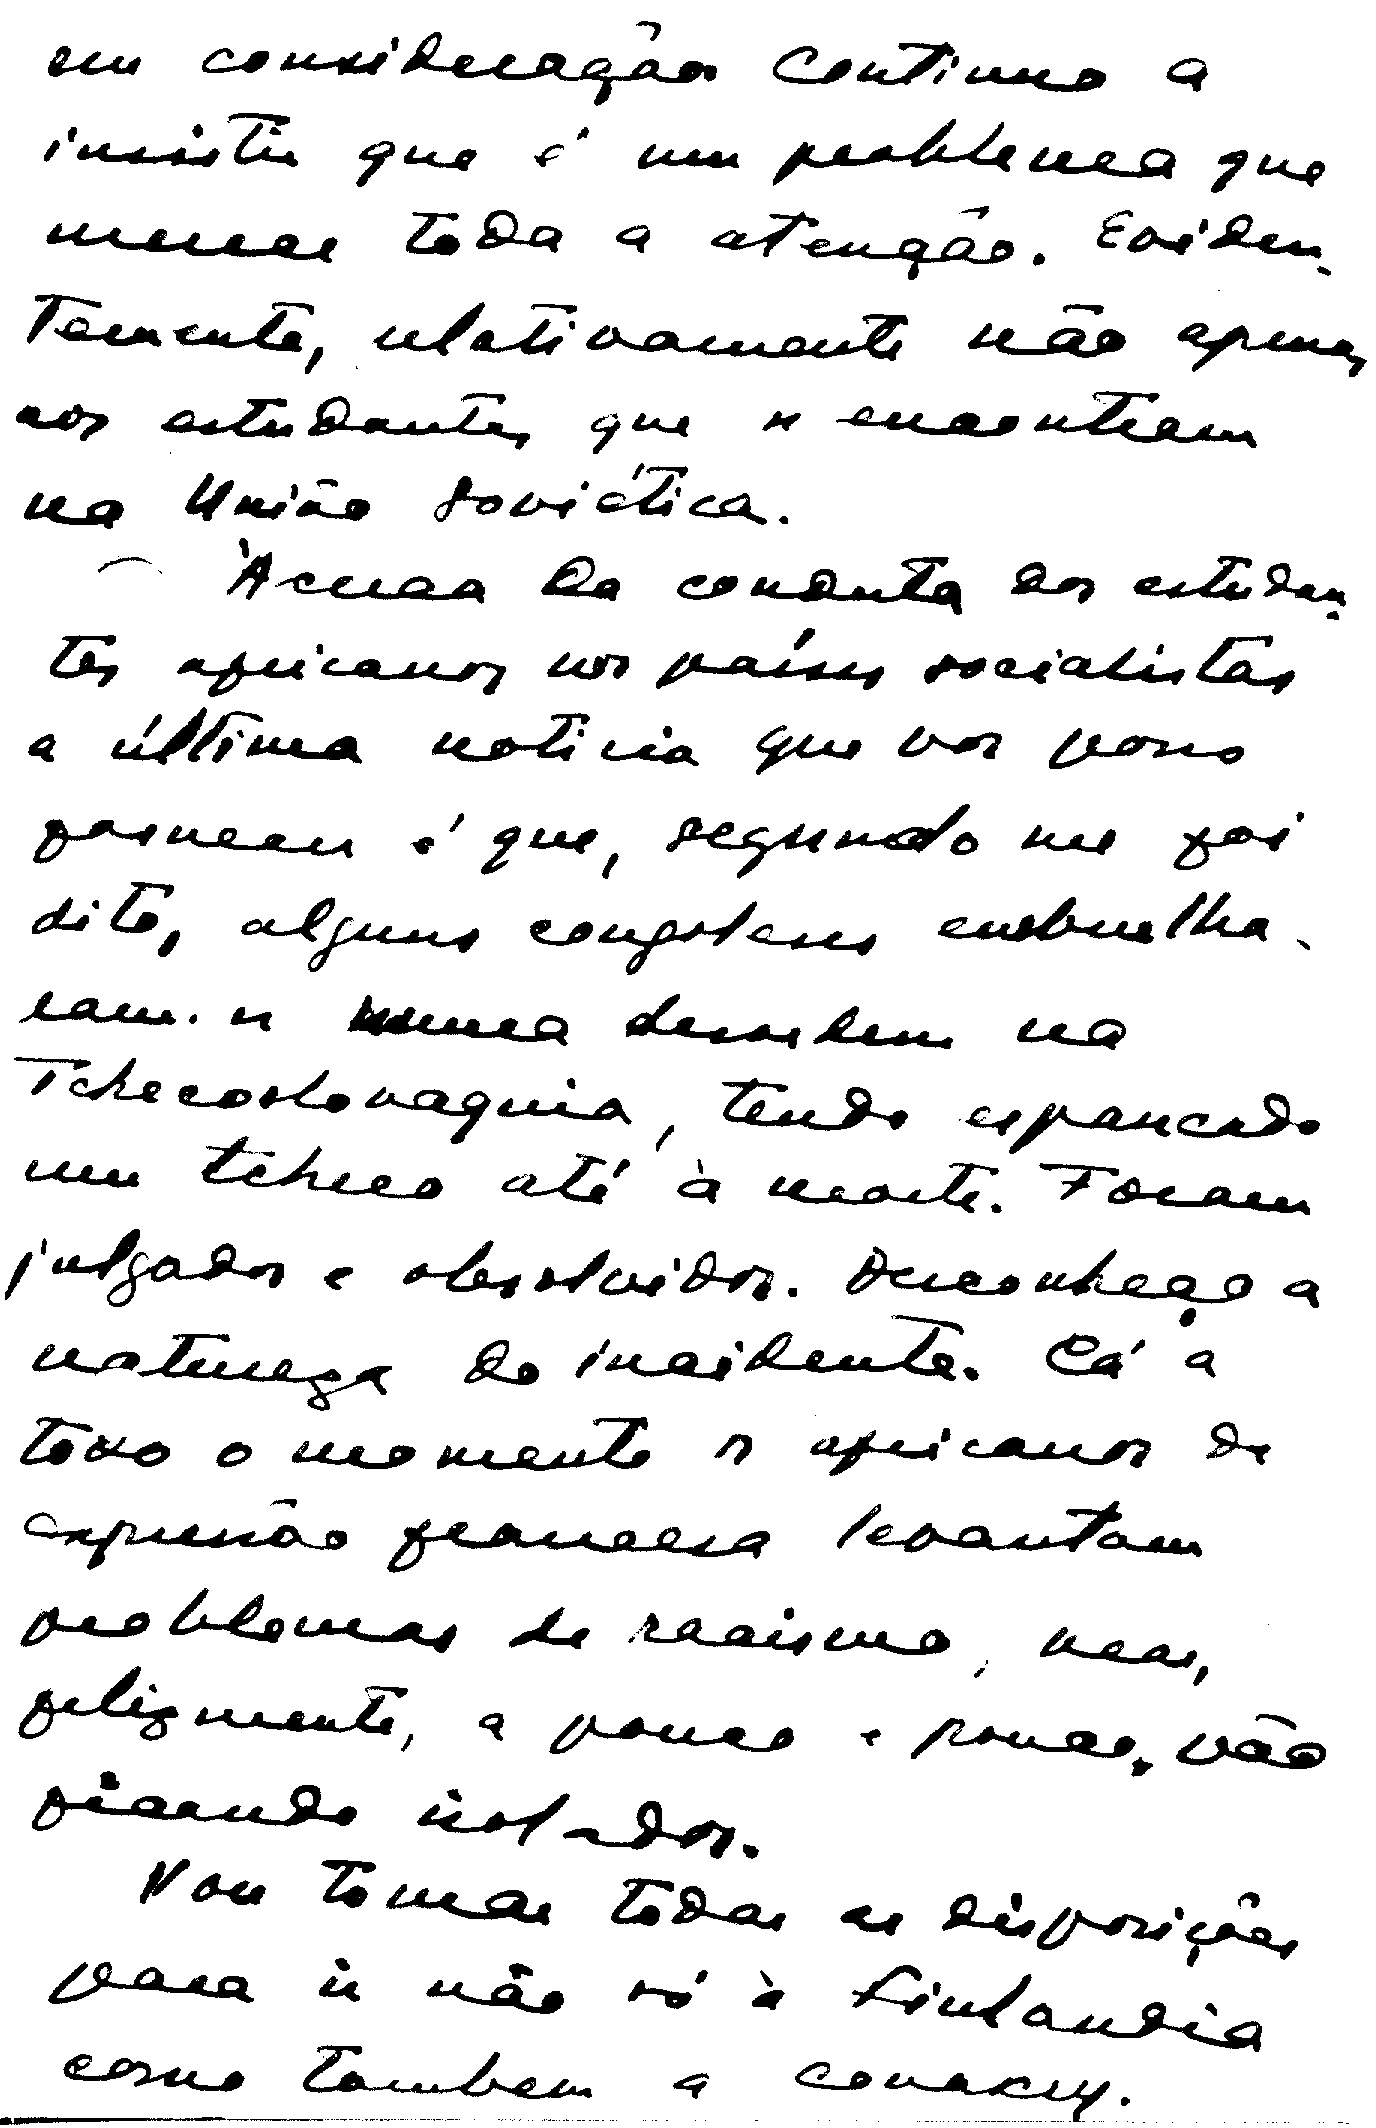 em consideração continuo a
insistir que é um problema que
merece toda a atenção. Eviden-
temente, relativamente não apenas
aos estudantes que se encontram
na União Soviética.
Àcerca da conduta dos estudan-
tes africanos nos países socialistas
a última noticia que vos posso
fornecer é que, segundo me foi
dito, alguns congoleses embrulha-
ram-se numa desordem na
Tchecoslovaquia, tendo espancado
um tcheco até à morte. Foram
julgados e absolvidos. Desconheço a
natureza do incidente. Cá a
todo o momento os africanos de
expressão francesa levantam
problemas de racismo, mas,
felizmente, a pouco e pouco, vão
ficando isolados.
Vou tomar todas as disposições
para ir não só à Finlandia
como tambem a Conakry.